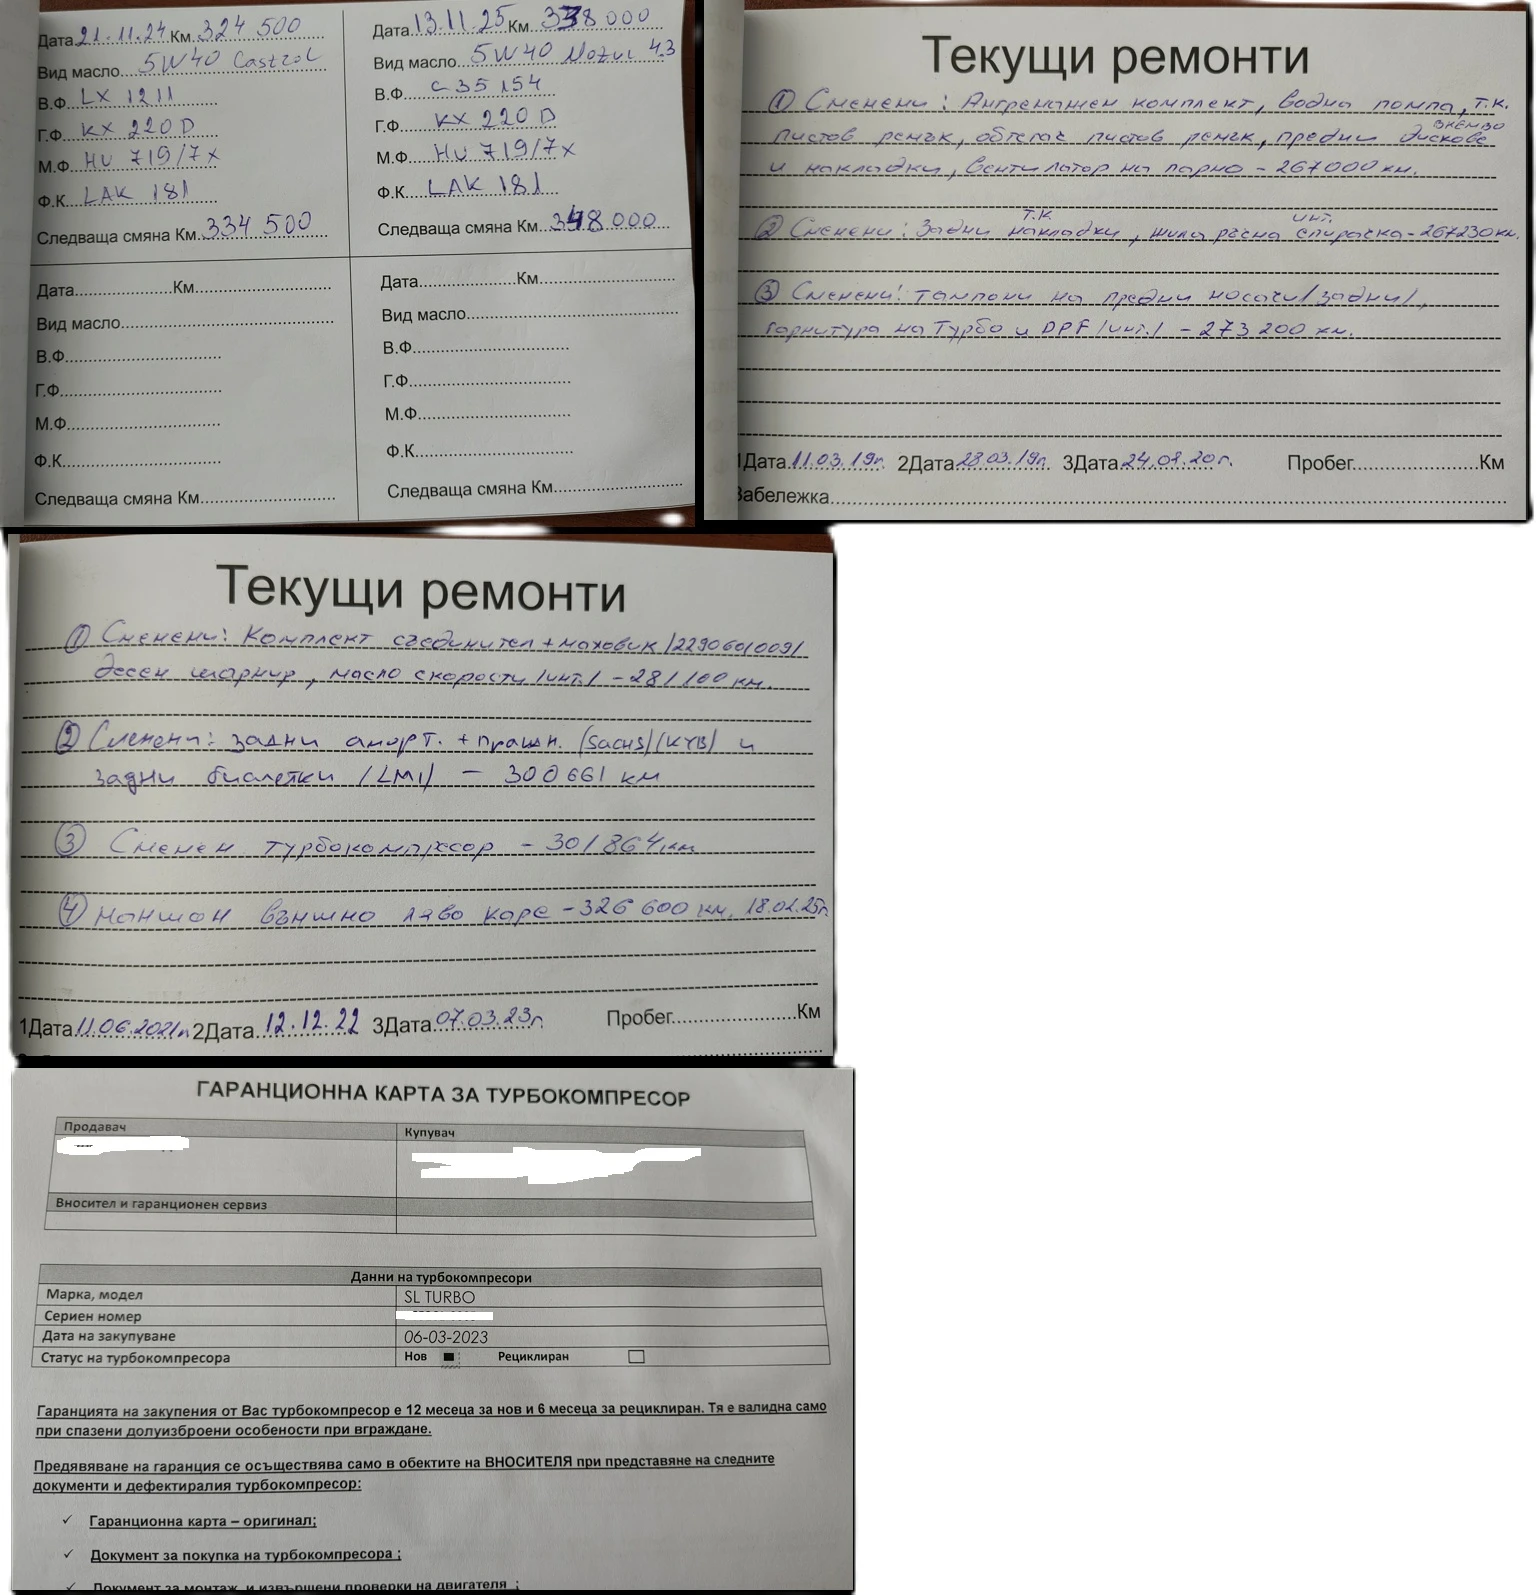 Дата 21.11.24 Км. 324 500
Вид масло 5W40 Castrol
В.Ф. LX 1211
Г.Ф. KX 220D
М.Ф. HU 719/7x
Ф.К. LAK 181
Следваща смяна Км. 334 500
Дата 13.11.25 Км. 338 000
Вид масло 5W40 Motul 4.3
В.Ф. C 35 154
Г.Ф. KX 220 D
М.Ф. HU 719/7x
Ф.К. LAK 181
Следваща смяна Км. 348 000
Дата Км
Вид масло
В.Ф
Г.Ф
М.Ф
Ф.К
Следваща смяна Км
Дата Км
Вид масло
В.Ф
Г.Ф
М.Ф
Ф.К
Следваща смяна Км
Текущи ремонти
① Сменени: Ангренажен комплект, водна помпа, т.к.
пистов ремък, обтегач пистов ремък, предни дискове
и накладки, вентилатор на парно - 267000 км.
② Сменени: Задни накладки т.к., жила ръчна спирачка инт. - 267230 км.
③ Сменени: тампони на предни носачи /задни/,
гарнитура на Турбо и DPF /инт./ - 273 200 км.
1Дата 11.03.19г. 2Дата 28.03.19г. 3Дата 24.08.20г. Пробег Км
Забележка
Текущи ремонти
① Сменени: Комплект съединител + маховик /2290601009/
десен шарнир, масло скорости /инт./ - 281100 км.
② Сменени: задни аморт. + прашн. (Sachs) (KYB) и
задни биалетки /LMI/ - 300 661 км
③ Сменен турбокомпресор - 301864 км
④ Маншон външно ляво каре - 326 600 км. 18.02.25г.
1Дата 11.06.2021г. 2Дата 12.12.22 3Дата 07.03.23г. Пробег Км
ГАРАНЦИОННА КАРТА ЗА ТУРБОКОМПРЕСОР
Продавач Купувач
Вносител и гаранционен сервиз
Данни на турбокомпресори
Марка, модел SL TURBO
Сериен номер
Дата на закупуване 06-03-2023
Статус на турбокомпресора Нов Рециклиран
Гаранцията на закупения от Вас турбокомпресор е 12 месеца за нов и 6 месеца за рециклиран. Тя е валидна само
при спазени долуизброени особености при вграждане.
Предявяване на гаранция се осъществява само в обектите на ВНОСИТЕЛЯ при представяне на следните
документи и дефектиралия турбокомпресор:
✓ Гаранционна карта – оригинал;
✓ Документ за покупка на турбокомпресора ;
✓ Документ за монтаж и извършени проверки на двигателя ;